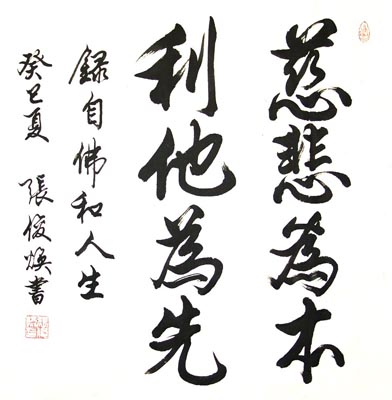 慈悲為本
利他為先
録自佛和人生
癸巳夏 張俊煥書